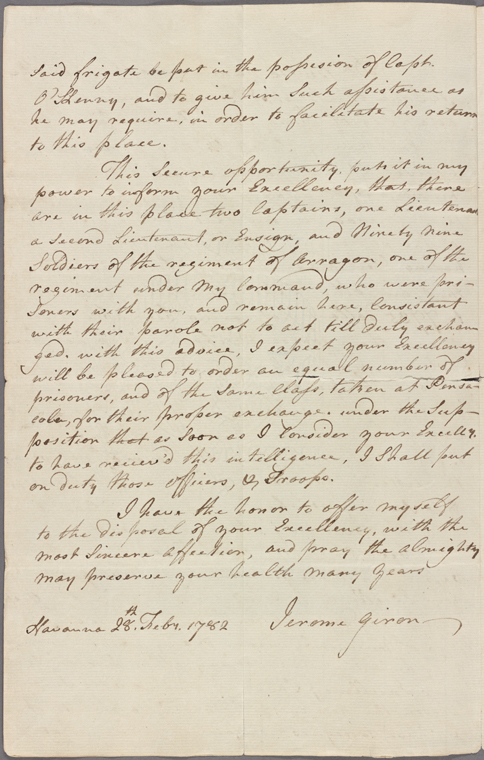 said frigate be put in the possesion of Capt.
O'Kenny, and to give him such assistance as
he may require, in order to facilitate his return
to this place.
This secure opportunity, puts it in my
power to inform your Excellency, that, there
are in this place two Captains, one Lieutenant
a second Lieutenant, or Ensign, and Ninety nine
Soldiers of the regiment of Arragon, one of the
regiment under my Command, who were pri-
soners with you, and remain here, Consistant
with their parole not to act till duly exchan-
ged. with this advice, I expect your Excellency
will be pleased to order an equal number of
prisoners, and of the same Class, taken at Pensa-
cola, for their proper exchange. under the Sup-
position that as soon as I Consider your Excelly.
to have reciev'd this intelligence, I shall put
on duty those officers, & Troops.
I have the honor to offer myself
to the disposal of your Excellency, with the
most sincere affection, and pray the almighty
may preserve your health many years
Havanna 28th. Feby. 1782 Jerome Giron